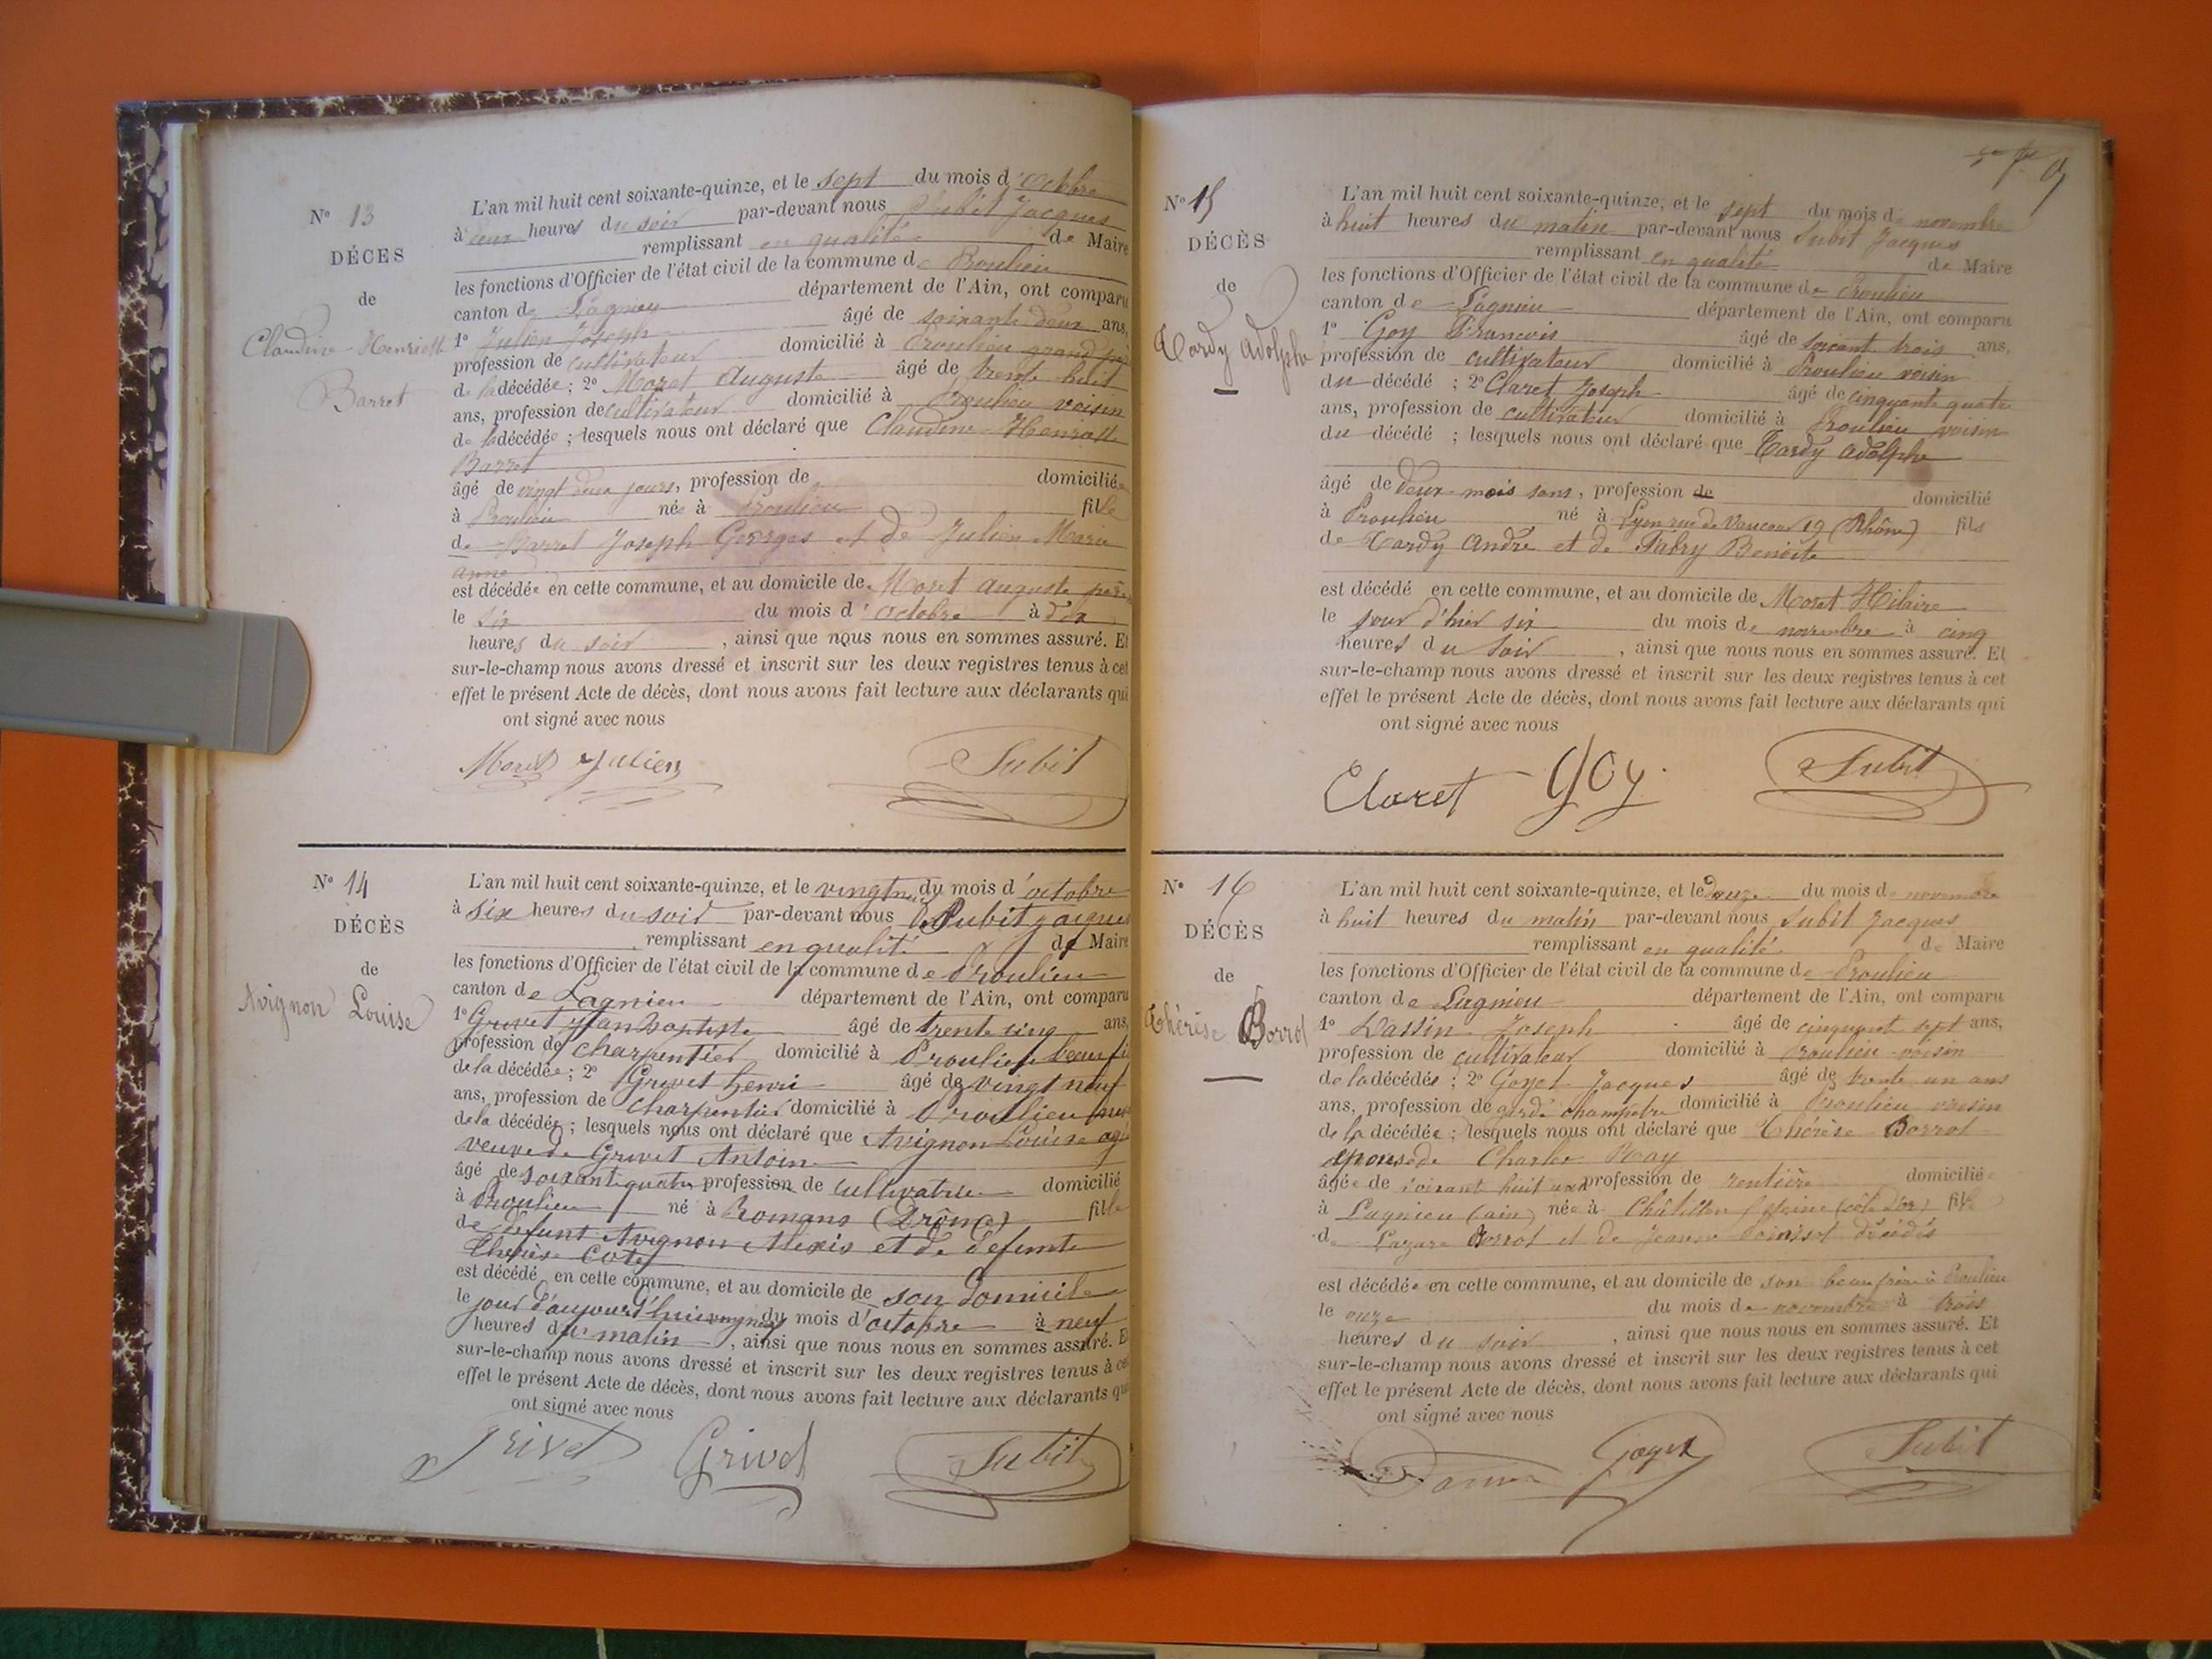 N° 13
DÉCES
de
Claudine Henriette
Barret
L'an mil huit cent soixante-quinze, et le sept du mois d'octobre
à deux heures du soir par-devant nous Subit Jacques
remplissant en qualité de Maire
les fonctions d'Officier de l'état civil de la commune de Proulieu
canton de Lagnieu département de l'Ain, ont comparu
1° Julien Joseph âgé de soixante deux ans,
profession de cultivateur domicilié à Proulieu grand père
de la décédée ; 2° Moret Auguste âgé de trente huit
ans, profession de cultivateur domicilié à Proulieu voisin
de la décédée ; lesquels nous ont déclaré que Claudine Henriette
Barret
âgé de vingt deux jours, profession de domiciliée
à Proulieu née à Proulieu fille
de Barret Joseph Georges et de Julien Marie
anne
est décédée en cette commune, et au domicile de Moret Auguste
le six du mois d'octobre à dix
heures du soir , ainsi que nous nous en sommes assuré. Et
sur-le-champ nous avons dressé et inscrit sur les deux registres tenus à cet
effet le présent Acte de décès, dont nous avons fait lecture aux déclarants qui
ont signé avec nous
Moret Julien Subit
N° 14
DÉCÈS
de
Avignon Louise
L'an mil huit cent soixante-quinze, et le vingtneuf du mois d'octobre
à six heures du soir par-devant nous Subit jacques
remplissant en qualité de Maire
les fonctions d'Officier de l'état civil de la commune de Proulieu
canton de Lagnieu département de l'Ain, ont comparu
1° Grivet jean baptiste âgé de trente cinq ans,
profession de charpentier domicilié à Proulieu beau fi
de la décédée ; 2° Grivet henri âgé de vingt neuf
ans, profession de charpentier domicilié à Proulieu
de la décédée ; lesquels nous ont déclaré que Avignon Louise agé
veuve de Grivet Antoine
âgé de soixante quatre profession de cultivatrice domicilié
à Proulieu né à Romans (Drôme) fille
de defunt Avignon Alexis et de defunte
therèse Cote
est décédé en cette commune, et au domicile de son domicile
le jour d'aujourd'hui vingtneuf du mois d'octobre à neuf
heures du matin , ainsi que nous nous en sommes assuré. Et
sur-le-champ nous avons dressé et inscrit sur les deux registres tenus à cet
effet le présent Acte de décès, dont nous avons fait lecture aux déclarants qui
ont signé avec nous
Grivet Grivet Subit
N° 15
DÉCÈS
de
Tardy Adolphe
L'an mil huit cent soixante-quinze, et le sept du mois de novembre
à huit heures du matin par-devant nous Subit Jacques
remplissant en qualité de Maire
les fonctions d'Officier de l'état civil de la commune de Proulieu
canton de Lagnieu département de l'Ain, ont comparu
1° Goy François âgé de soixant trois ans,
profession de cultivateur domicilié à Proulieu voisin
du décédé ; 2° Claret Joseph âgé de cinquante quatre
ans, profession de cultivateur domicilié à Proulieu voisin
du décédé ; lesquels nous ont déclaré que Tardy Adolphe
âgé de deux mois sans, profession de domicilié
à Proulieu né à Lyon rue de Vaucour 19 (Rhône) fils
de Tardy André et de Fabry Benoite
est décédé en cette commune, et au domicile de Moret Hilaire
le jour d'hier six du mois de novembre à cinq
heures du soir , ainsi que nous nous en sommes assuré. Et
sur-le-champ nous avons dressé et inscrit sur les deux registres tenus à cet
effet le présent Acte de décès, dont nous avons fait lecture aux déclarants qui
ont signé avec nous
Claret Goy Subit
N° 16
DÉCÈS
de
Thérèse Borrot
L'an mil huit cent soixante-quinze, et le douze du mois de novembre
à huit heures du matin par-devant nous Subit Jacques
remplissant en qualité de Maire
les fonctions d'Officier de l'état civil de la commune de Proulieu
canton de Lagnieu département de l'Ain, ont comparu
1° Joseph âgé de cinquant sept ans,
profession de cultivateur domicilié à Proulieu voisin
de la décédée ; 2° Goyet Jacques âgé de trente un ans
ans, profession de garde champetre domicilié à Proulieu voisin
de la décédée ; lesquels nous ont déclaré que Thérèse Borrot
épouse de Charles
âgée de soixant huit ans profession de rentière domiciliée
à Lagnieu (ain) née à Châtillon s Seine (côte d'or) fille
de Lazare Borrot et de Jeanne décédés
est décédée en cette commune, et au domicile de son beau frère à Proulieu
le onze du mois de novembre à trois
heures du soir , ainsi que nous nous en sommes assuré. Et
sur-le-champ nous avons dressé et inscrit sur les deux registres tenus à cet
effet le présent Acte de décès, dont nous avons fait lecture aux déclarants qui
ont signé avec nous
Goyet Subit